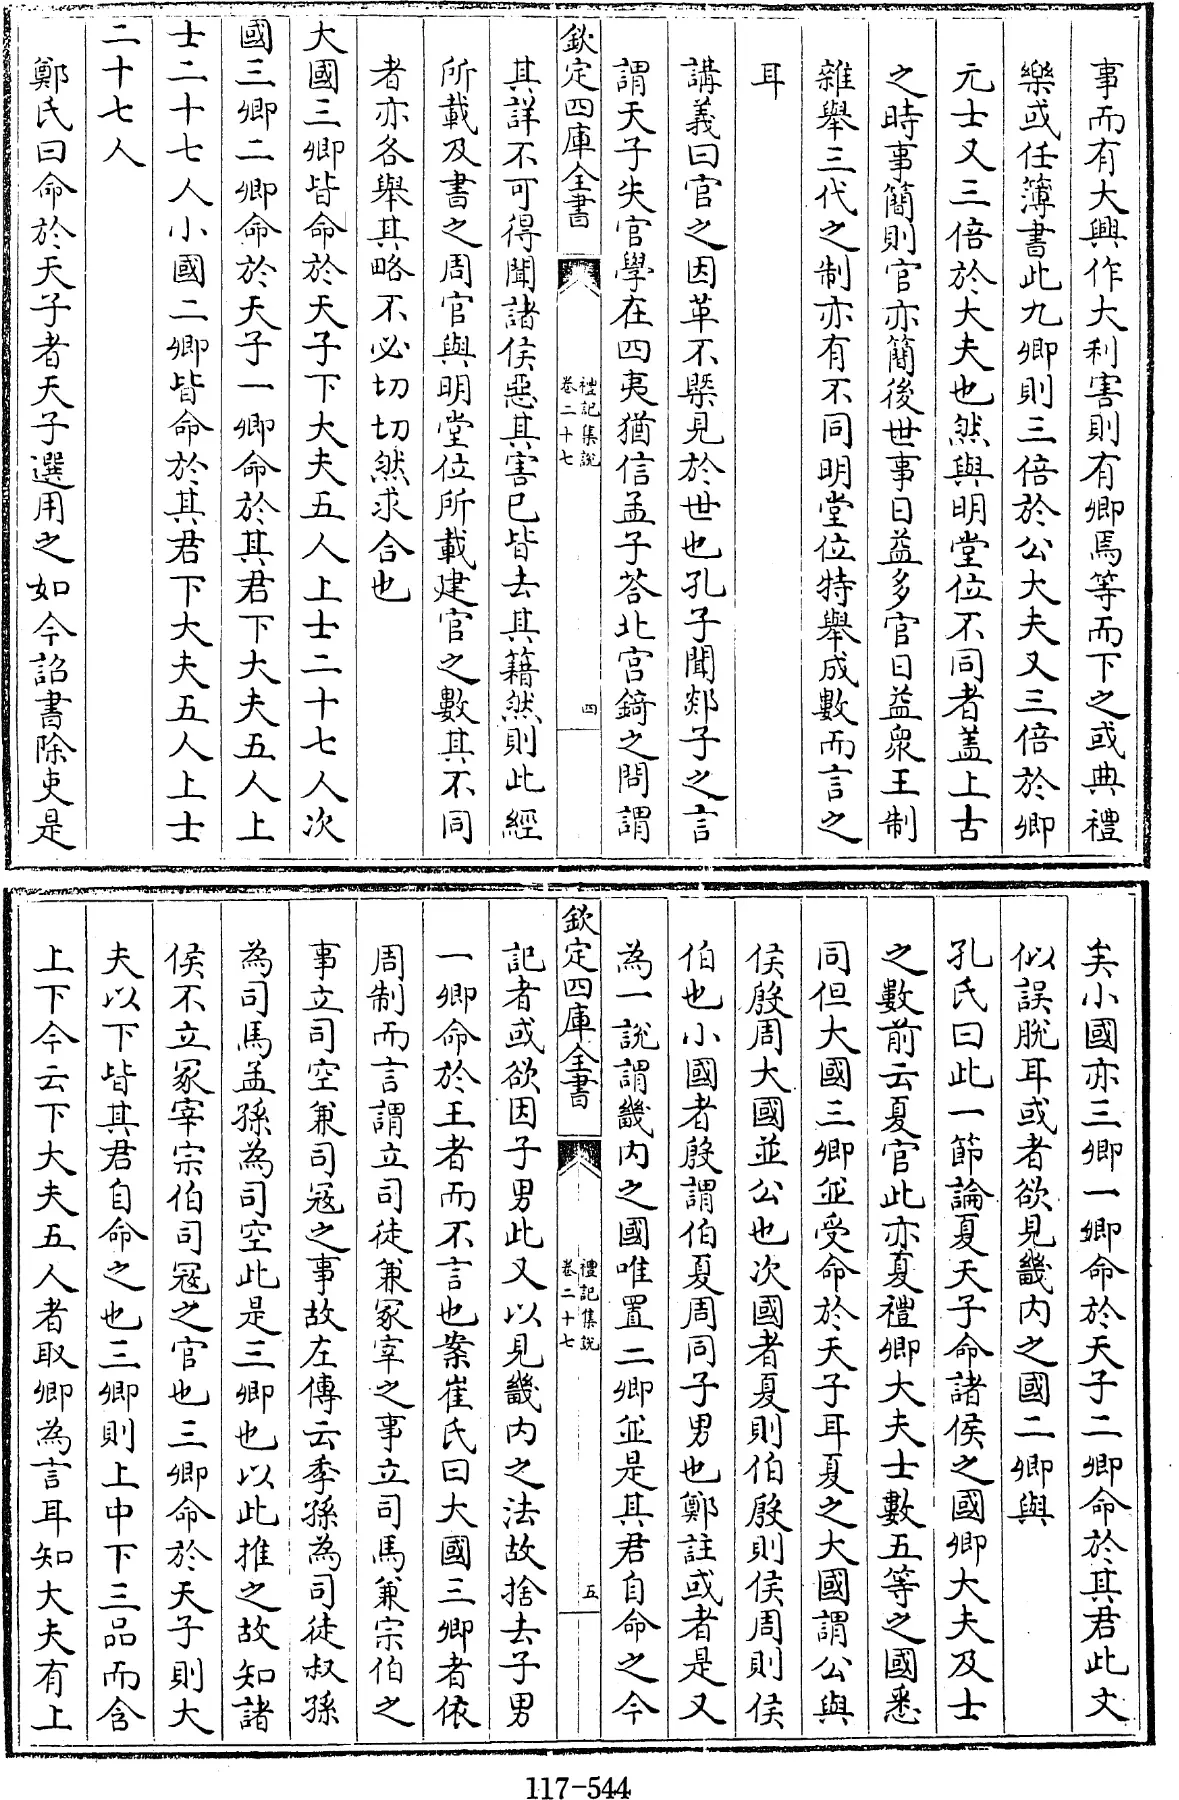 事而有大興作大利害則有卿焉等而下之或典禮
樂或任簿書此九卿則三倍於公大夫又三倍於卿
元士又三倍於大夫也然與明堂位不同者蓋上古
之時事簡則官亦簡後世事日益多官日益衆王制
雜舉三代之制亦有不同明堂位特舉成數而言之
耳
講義曰官之因革不槩見於世也孔子聞郯子之言
謂天子失官學在四夷猶信孟子荅北宫錡之問謂
欽定四庫全書
禮記集說
卷二十七
四
其詳不可得聞諸侯惡其害已皆去其籍然則此經
所載及書之周官與明堂位所載建官之數其不同
者亦各舉其略不必切切然求合也
大國三卿皆命於天子下大夫五人上士二十七人次
國三卿二卿命於天子一卿命於其君下大夫五人上
士二十七人小國二卿皆命於其君下大夫五人上士
二十七人
鄭氏曰命於天子者天子選用之如今詔書除吏是
矣小國亦三卿一卿命於天子二卿命於其君此文
似誤脫耳或者欲見畿内之國二卿與
孔氏曰此一節論夏天子命諸侯之國卿大夫及士
之數前云夏官此亦夏禮卿大夫士數五等之國悉
同但大國三卿並受命於天子耳夏之大國謂公與
侯殷周大國並公也次國者夏則伯殷則侯周則侯
伯也小國者殷謂伯夏周同子男也鄭註或者是又
為一說謂畿内之國唯置二卿並是其君自命之今
欽定四庫全書
禮記集說
卷二十七
五
記者或欲因子男此又以見畿内之法故捨去子男
一卿命於王者而不言也案崔氏曰大國三卿者依
周制而言謂立司徒兼冢宰之事立司馬兼宗伯之
事立司空兼司冦之事故左傳云季孫為司徒叔孫
為司馬孟孫為司空此是三卿也以此推之故知諸
侯不立冢宰宗伯司冦之官也三卿命於天子則大
夫以下皆其君自命之也三卿則上中下三品而含
上下今云下大夫五人者取卿為言耳知大夫有上
117-544